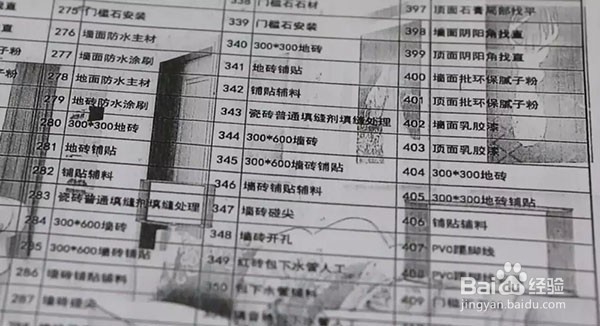 275 门槛石安装
276 墙面防水主材
277 墙面防水涂刷
278 地面防水主材
279 地砖防水涂刷
280 300*300地砖
281 地砖铺贴
282 铺贴辅料
283 瓷砖普通填缝剂填缝处理
284 300*600墙砖
285 300*600墙砖铺贴
286 墙砖铺贴辅料
287 墙砖碰尖
338 门槛石石材
339 门槛石安装
340 300*300地砖
341 地砖铺贴
342 铺贴辅料
343 瓷砖普通填缝剂填缝处理
344 300*600墙砖
345 300*600墙砖铺贴
346 墙砖铺贴辅料
347 墙砖碰尖
348 墙砖开孔
349 红砖包下水管人工
350 包下水管辅料
397 顶面石膏尾部找平
398 墙面阴阳角找直
399 顶面阴阳角找直
400 墙面批环保腻子粉
401 顶面批环保腻子粉
402 墙面乳胶漆
403 顶面乳胶漆
404 300*300地砖
405 300*300地砖铺贴
406 铺贴辅料
407 PVC踢脚线
408 PVC踢脚线
409 门槛
Baidu经验
jingyan.baidu.com